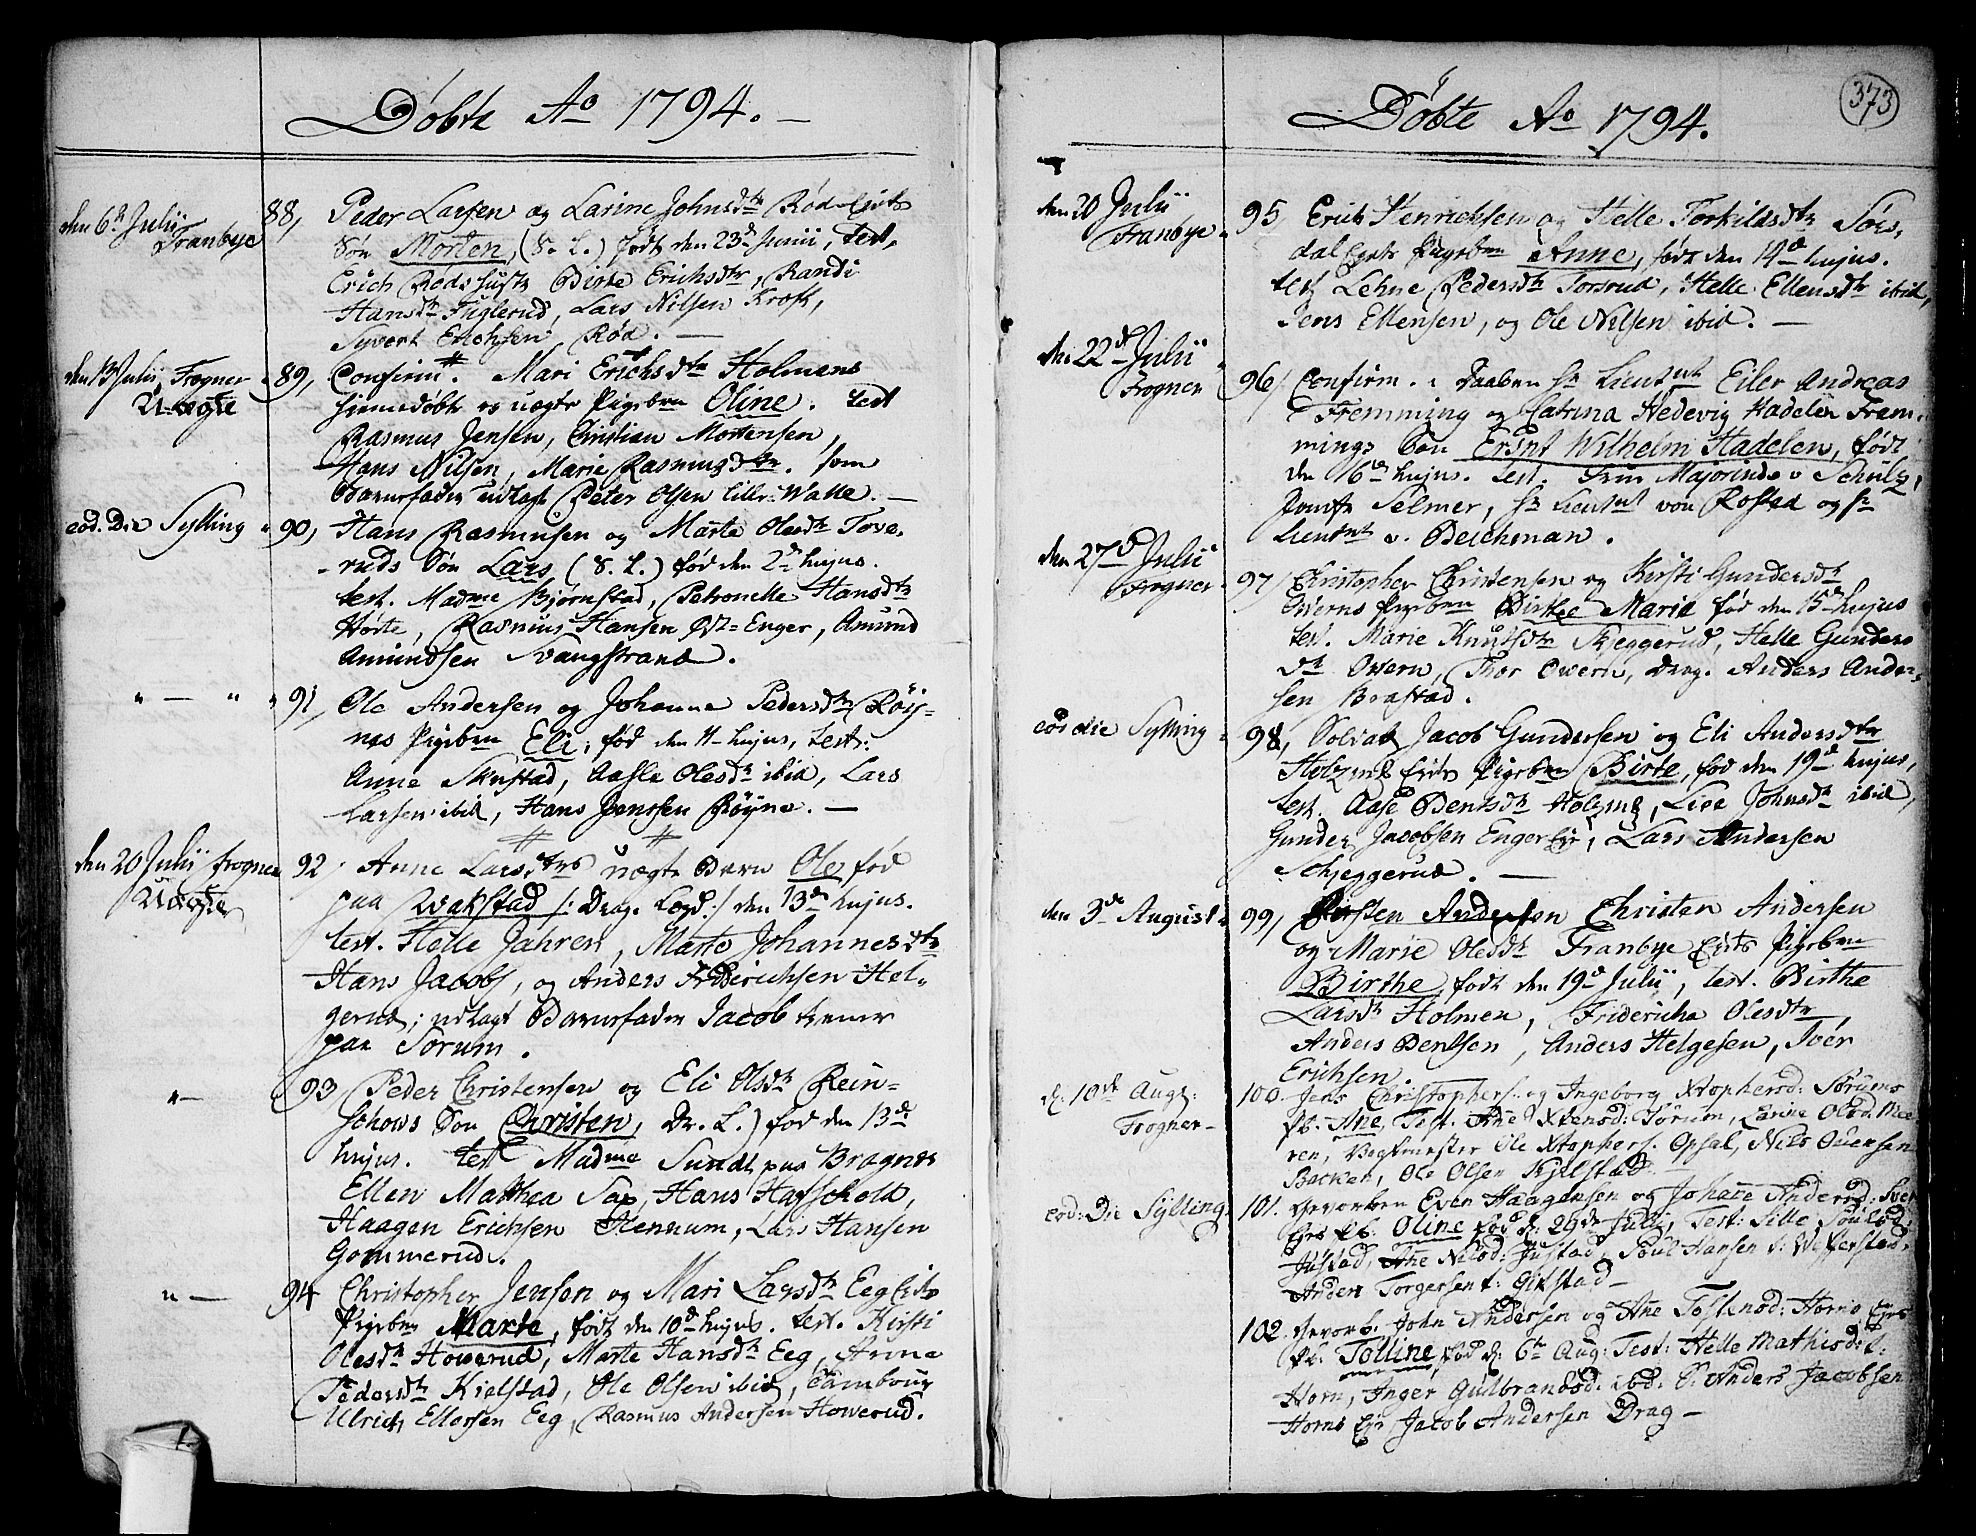 Döbte Ao 1794.
den 6te Julii 88, Peder Larsen og Larine Johnsdtr Röd Eiets
Tranbye Sön Morten, (S. L.) födt den 23de Junii, test,
Erich Röds Birte Erichsdtr, Randi
Hansdtr Fuglerud, Lars Nilsen Kroft,
Syvert Erichsen Röd.
den 13 Julii Frogner 89, Confirm. Mari Erichsdtr Holmens
Uægte hjemedöbte uægte Pigebrn Oline. test
Rasmus Jensen, Christian Mortensen,
Hans Nilsen, Marie Rasmusdtr. som
Barnefader udlagt Peter Olsen Eller-Walle.
eod. Die Sylling 90, Hans Rasmusen og Marte Olesdtr Tove-
ruds Sön Lars (S. L.) föd den 2de hujus.
test. Madme Bjørnstad, Petronelle Hansdtr
Hörte, Rasmus Hansen Öst-Enger, Amund
Amundsen Svangstrand.
" — " " 91, Ole Andersen og Johanne Pedersdtr Röy-
nes Pigebrn Eli, föd den 11 hujus, test.
Anne Skustad, Aasle Olesdtr ibid, Lars
Larsen ibid, Hans Jenssen Röyne.
den 20 Julii Frogner 92, Anne Larsdtrs uægte Barn Ole föd
Uægte paa Wakstad /: Drag. Logd:/ den 13de hujus.
test. Helle Jahren, Marte Johannesdtr
Hans Jacobs, og Anders Friderichsen Hel-
gerud; udlagt Barnefader Jacob tiener
paa Sorum.
" — 93 Peder Christensen og Eli Olsdtr Rein-
schows Sön Christen, Dr. L.) föd den 13de
hujus. test Madme Sundt paa Bragnes
Ellen Mathea Sax, Hans Hasscholt,
Haagen Erichsen Hennum, Lars Hansen
Gommerud.
" — 94 Christopher Jensen og Mari Larsdtr Eeg Eiets
Pigebrn Marte, födt den 10de hujus. test. Kirsti
Olesdtr Howerud, Marte Hansdtr Eeg, Anne
Pedersdtr Kielstad, Ole Olsen ibid, Tambour
Ulrich Ellersen Eeg, Rasmus Andersen Howerud.
Döbte Ao 1794.
373
den 20 Julii 95 Erich Henrichsen og Helle Torkildsdtr Sörs-
Tranbye dal Eyets Pigebrn Anne, födt den 14de hujus.
test Lehne Pedersdtr Torsrud, Helle Ellensdtr ibid,
Jens Ellensen, og Ole Nilsen ibid.
den 22de Julii 96, Confirm. Daaben Hr Lieutnt Eiler Andreas
Frogner Fremming og Catrina Hedevig Hadelen Frem-
mings Sön Ernst Wilhelm Hadelen, födt
den 16de hujus. test. Frue Majorinde v Schultz,
Jomfr Selmer, Hr Lieutnt von Rosted og Hr
Lieutnt v. Deichman.
den 27de Julii 97, Christopher Christensen og Kirsti Gundersdtr
Frogner Owerns Pigebrn Birthe Marie föd den 15de hujus
test. Marie Knutsdtr Skjeggerud, Helle Gunders-
dtr Owern, Thor Owern, Drag. Anders Ander-
sen Brastad.
eod die Sylling 98, Soldat Jacob Gundersen og Eli Andersdtr
Holtzmk Eyets Pigebrn Birte, föd den 19de hujus,
test. Aase Bentsdtr Holtzmk, Live Johnsdtr ibid,
Gunder Jacobsen Enger Eyr, Lars Andersen
Schjeggerud.
den 3de August 99, Christen Andersen
og Marie Olesdtr Tranbye Eyets Pigebrn
Birthe, födt den 19de Julii, test. Birthe
Larsdtr Holmen, Fridericha Olesdtr
Anders Bentsen, Anders Helgesen, Iver
Erichsen.
d: 10de Augt: 100. Jens Christophers: og Ingeborg Xtophersd: Sörums
Frogner Pb. Ane, Test. Ane Xtensd: Sörum, Karine Olsd: Mee-
ren, Vagtmester Ole Xtophers. Opsal, Niels Ovensen
Backen, Ole Olsen Kjelstad
eod: Die Sylling 101. Gevorben Even Haagensen og Johane Andersd:
Eyes Pb: Oline föd d: 29de Julii, Test: Sille Poulsd:
Justad, Ane Nilsd: Justad, Poul Hansen t: Welferstad,
Anders Torgersen t: Gitstad
102. Gevorb: John Andersen og Ane Tostensd: Horns Eyes
Pb: Tolline, föd d: 6te Aug: Test: Helle Mathisd: t:
Horn, Inger Gulbrandsd: ibd: S: Anders Jacobsen
Horns Eye Jacob Andersen Drag